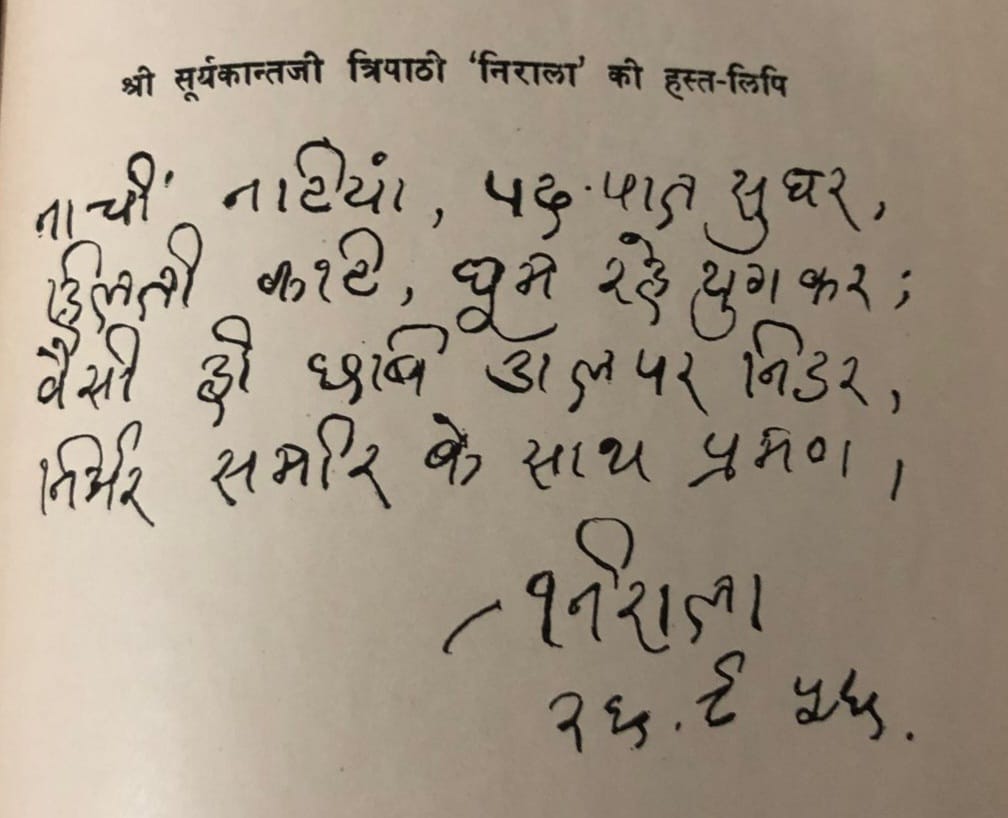 श्री सूर्यकान्तजी त्रिपाठी 'निराला' की हस्त-लिपि
नाचीं नटियां, पद-पात सुघर,
हिलती कटि, घूम रहे युग कर;
वैसी ही छवि जल पर निडर,
निर्भर समीर के साथ भ्रमण।
- निराला
२६.८ ५६.